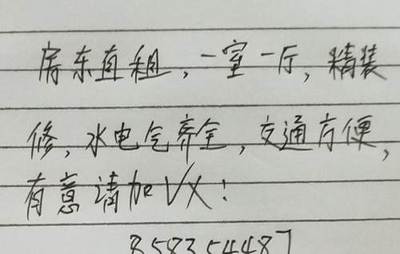 房东直租，一室一厅，精装
修，水电气齐全，交通方便，
有意请加VX：
858354487